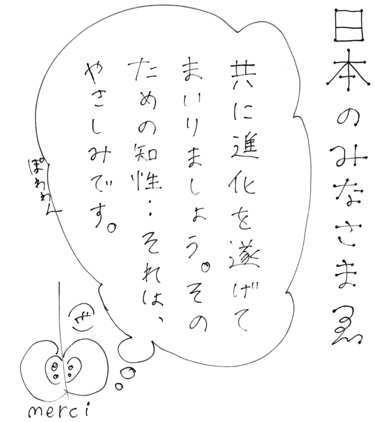 日本のみなさまゑ
共に進化を遂げて
まいりましょう。その
ための知性‥それは、
やさしみです。
ぽわわん
merci